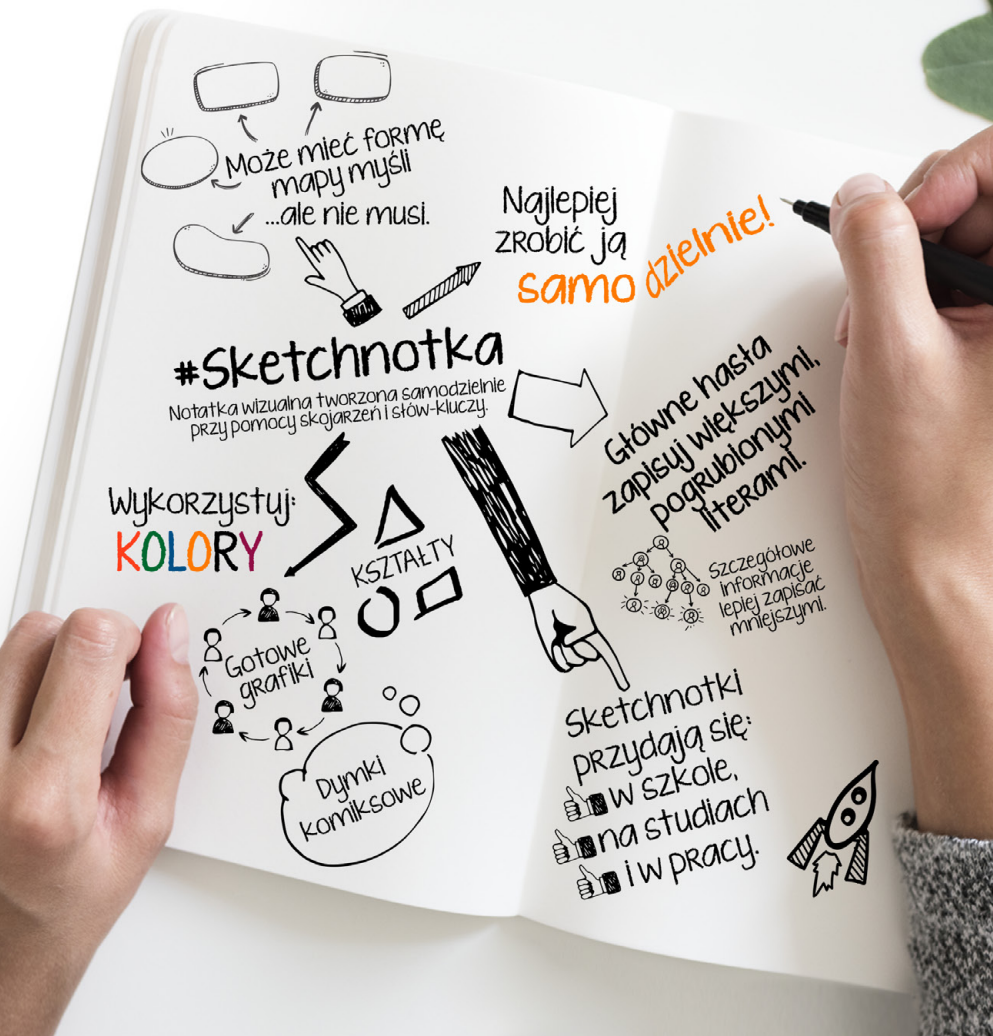 Może mieć formę
mapy myśli
...ale nie musi.
Najlepiej
zrobić ją
samo dzielnie!
#Sketchnotka
Notatka wizualna tworzona samodzielnie
przy pomocy skojarzeń i słów-kluczy.
Główne hasła
zapisuj większymi,
pogrubionymi
literami.
Wykorzystuj:
KOLORY
KSZTAŁTY
Szczegółowe
informacje
lepiej zapisać
mniejszymi.
Gotowe
grafiki
Dymki
komiksowe
Sketchnotki
przydają się:
w szkole,
na studiach
i w pracy.